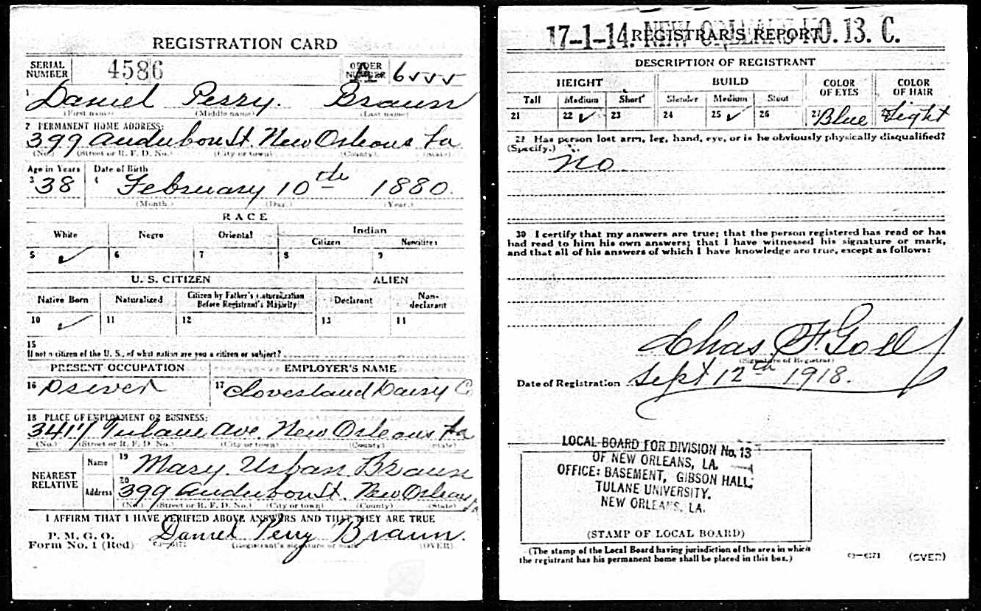 REGISTRATION CARD
SERIAL NUMBER 4586 ORDER NUMBER A 6555
1 Daniel Perry Braun
(First name) (Middle name) (Last name)
2 PERMANENT HOME ADDRESS:
399 Audubon St. New Orleans La
(No.) (Street or R. F. D. No.) (City or town) (County) (State)
Age in Years Date of Birth
3 38 4 February 10th 1880.
(Month.) (Day.) (Year.)
RACE
White Negro Oriental Indian
Citizen Noncitizen
5 ✓ 6 7 8 9
U. S. CITIZEN ALIEN
Native Born Naturalized Citizen by Father's Naturalization Before Registrant's Majority Declarant Non-declarant
10 ✓ 11 12 13 14
15
If not a citizen of the U. S., of what nation are you a citizen or subject?
PRESENT OCCUPATION EMPLOYER'S NAME
16 Driver 17 Cloverland Dairy C
18 PLACE OF EMPLOYMENT OR BUSINESS:
3417 Tulane Ave. New Orleans La
(No.) (Street or R. F. D. No.) (City or town) (County) (State)
NEAREST RELATIVE Name 19 Mary Urban Braun
Address 20 399 Audubon St. New Orleans
(No.) (Street or R. F. D. No.) (City or town) (County) (State)
I AFFIRM THAT I HAVE VERIFIED ABOVE ANSWERS AND THAT THEY ARE TRUE
P. M. G. O.
Form No. 1 (Red) Daniel Perry Braun.
(Registrant's signature or mark) (OVER)
17-1-14. NEW ORLEANS NO. 13. C.
REGISTRAR'S REPORT
DESCRIPTION OF REGISTRANT
HEIGHT BUILD COLOR OF EYES COLOR OF HAIR
Tall Medium Short Slender Medium Stout
21 22 ✓ 23 24 25 ✓ 26 27 Blue Light
29 Has person lost arm, leg, hand, eye, or is he obviously physically disqualified?
(Specify.) no
30 I certify that my answers are true; that the person registered has read or has
had read to him his own answers; that I have witnessed his signature or mark,
and that all of his answers of which I have knowledge are true, except as follows:
Chas F Goll
(Signature of Registrar)
Date of Registration Sept 12th 1918.
LOCAL BOARD FOR DIVISION No. 13
OF NEW ORLEANS, LA.
OFFICE: BASEMENT, GIBSON HALL,
TULANE UNIVERSITY.
NEW ORLEANS, LA.
(STAMP OF LOCAL BOARD)
(The stamp of the Local Board having jurisdiction of the area in which
the registrant has his permanent home shall be placed in this box.)
(OVER)